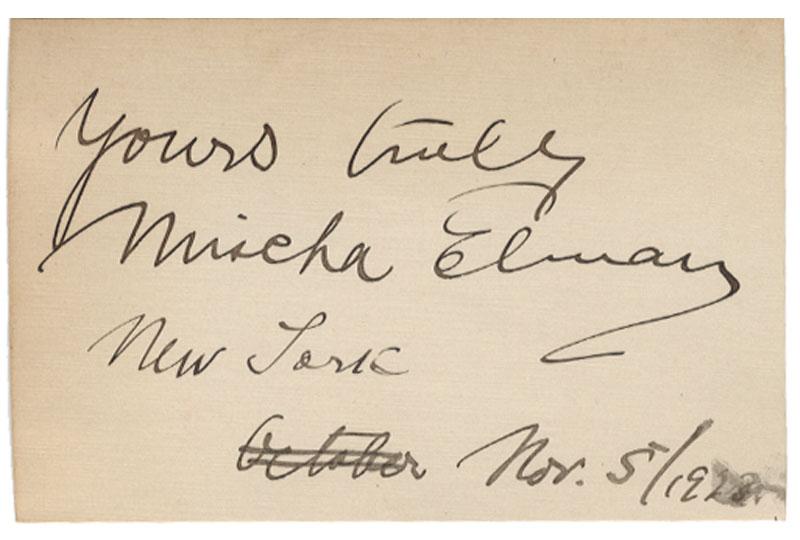 Yours truly
Mischa Elman
New York
October Nov. 5/1928.